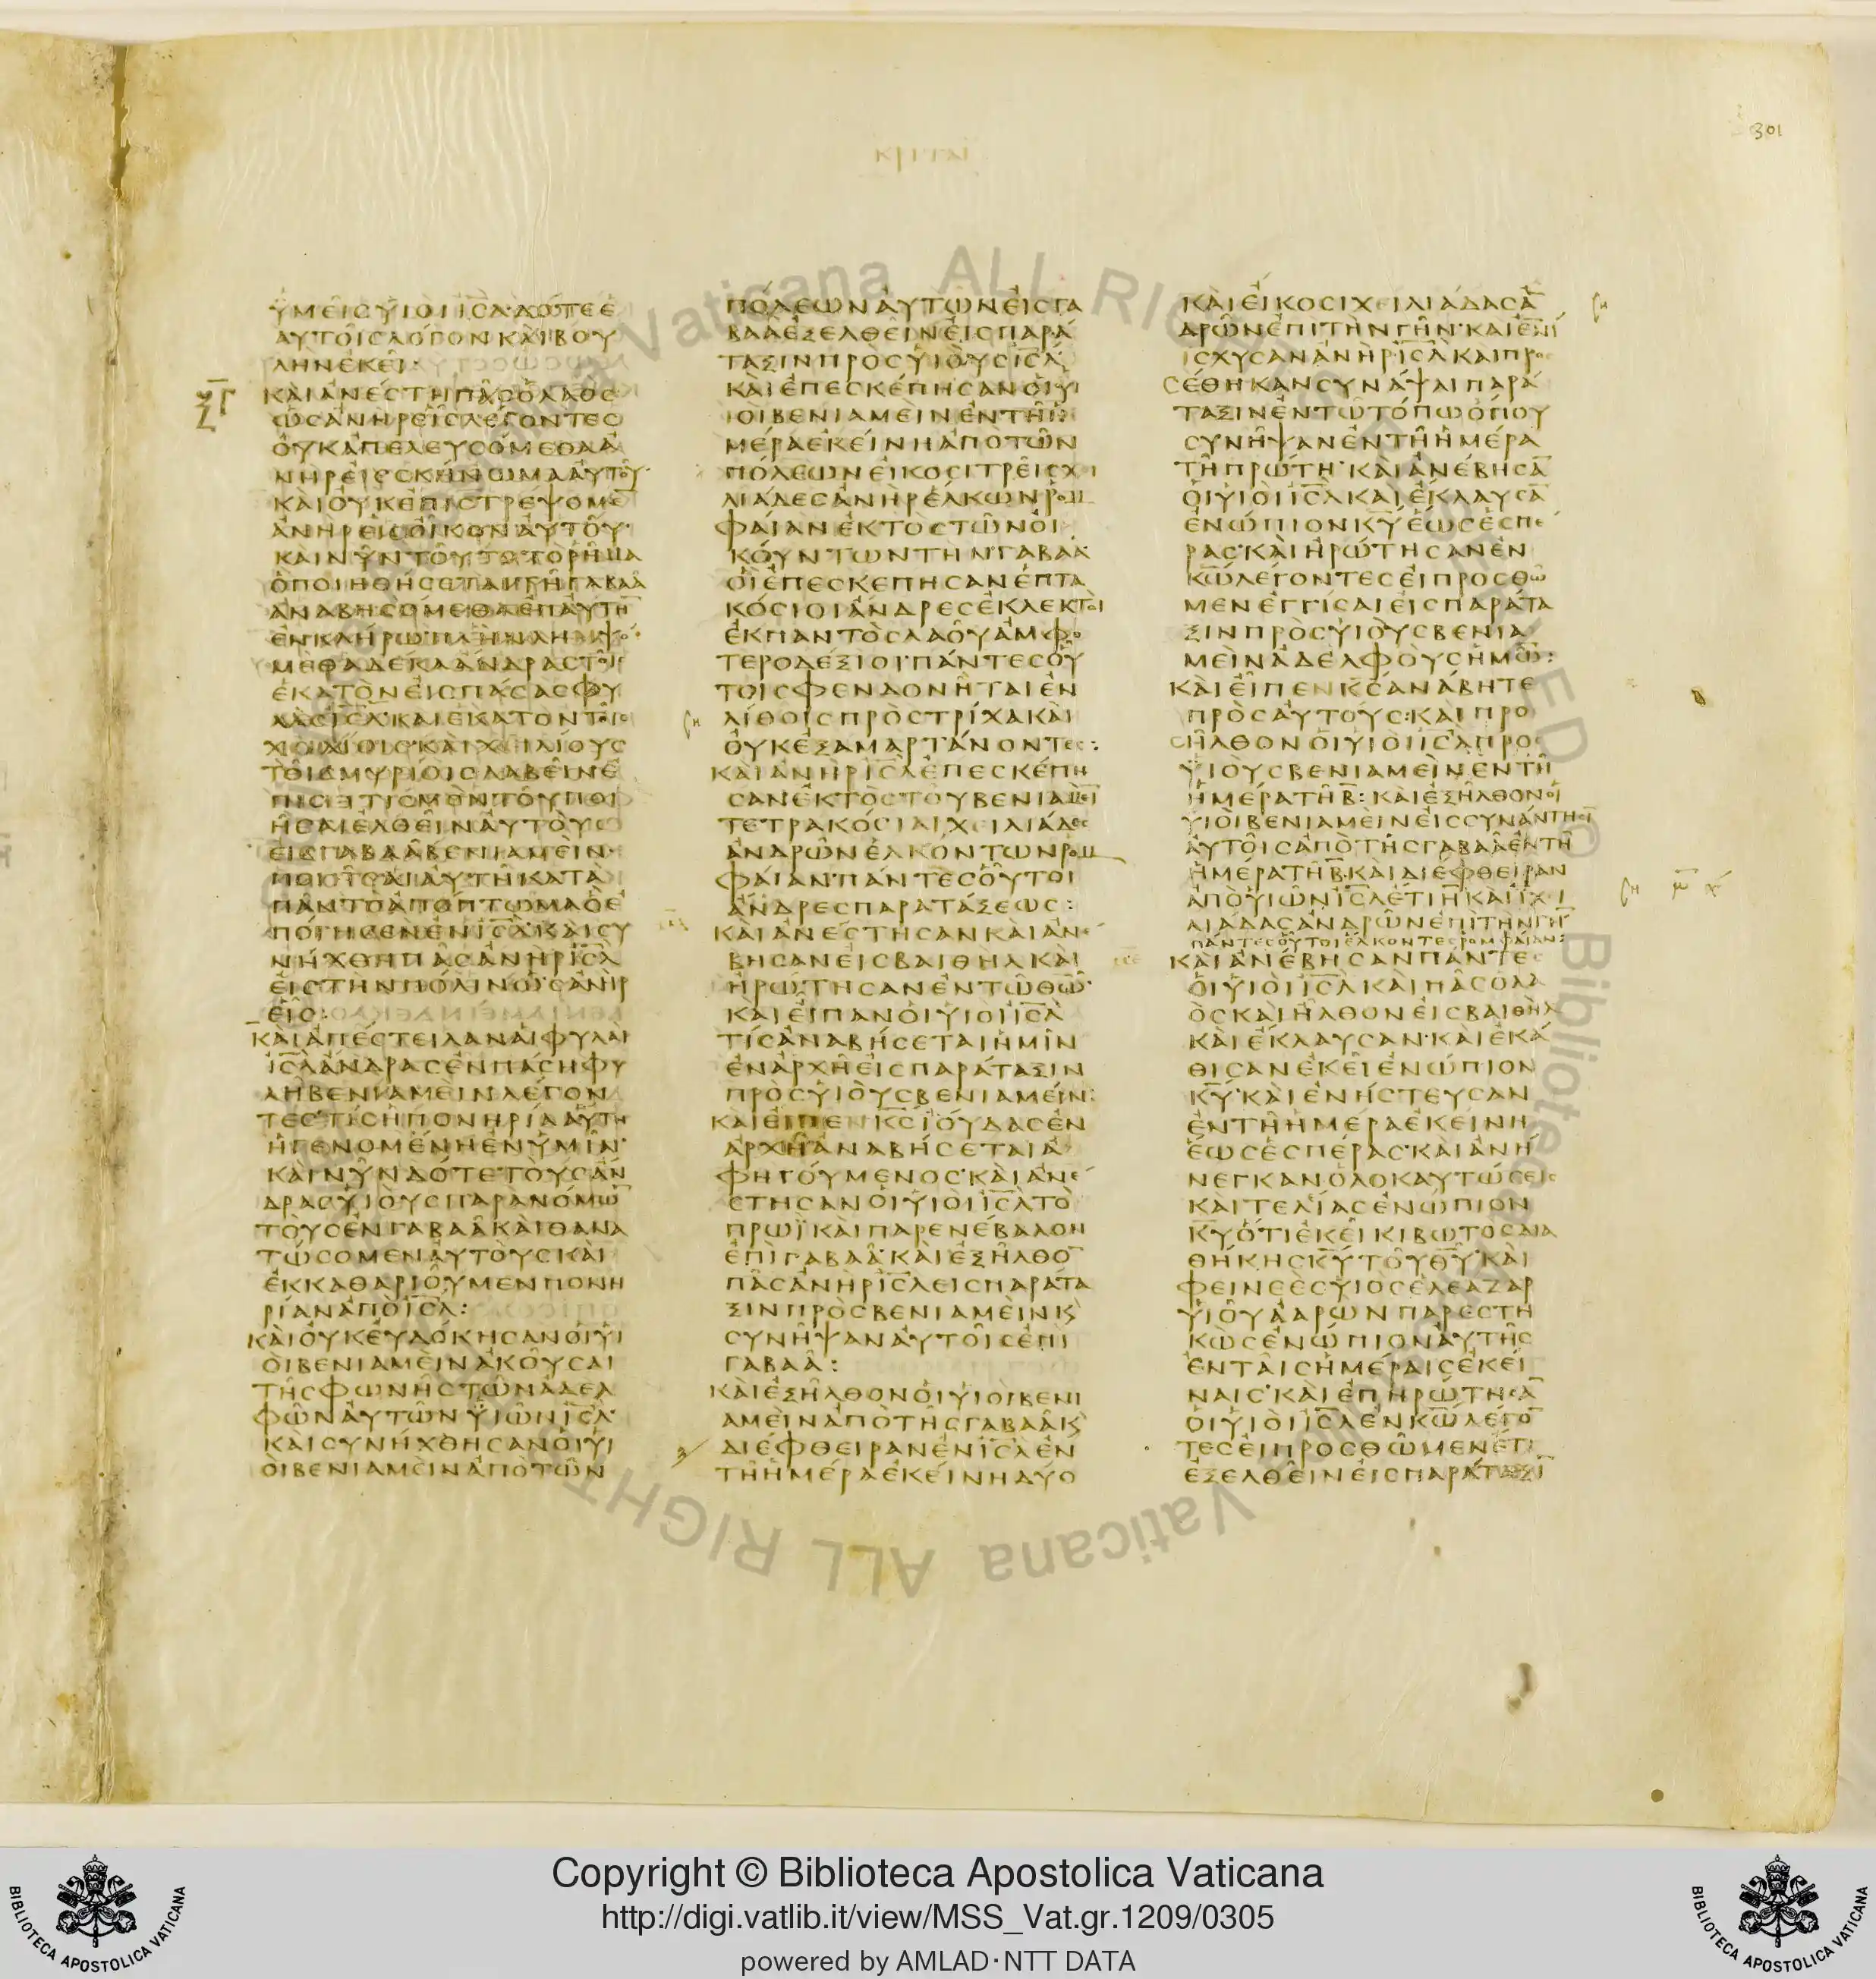 ΚΡΙΤΑΙ
301
ΥΜΕΙΣ ΥΙΟΙ ΙΣΛ ΔΟΤΕ Ε
ΑΥΤΟΙΣ ΛΟΓΟΝ ΚΑΙ ΒΟΥ
ΛΗΝ ΕΚΕΙ:
ΞΓ
ΚΑΙ ΑΝΕΣΤΗ ΠΑΣ Ο ΛΑΟΣ
ΩΣ ΑΝΗΡ ΕΙΣ ΛΕΓΟΝΤΕΣ
ΟΥΚ ΑΠΕΛΕΥΣΟΜΕΘΑ Α
ΝΗΡ ΕΙΣ ΣΚΗΝΩΜΑ ΑΥΤΟΥ
ΚΑΙ ΟΥΚ ΕΠΙΣΤΡΕΨΟΜΕ̅
ΑΝΗΡ ΕΙΣ ΟΙΚΟΝ ΑΥΤΟΥ
ΚΑΙ ΝΥΝ ΤΟΥΤΟ ΤΟ ΡΗΜΑ
Ο ΠΟΙΗΘΗΣΕΤΑΙ ΤΗ ΓΑΒΑΑ
ΑΝΑΒΗΣΟΜΕΘΑ ΕΠ ΑΥΤΗ̅
ΕΝ ΚΛΗΡΩ ΠΛΗΝ ΛΗΜΨΟ
ΜΕΘΑ ΔΕΚΑ ΑΝΔΡΑΣ ΤΟΙΣ
ΕΚΑΤΟΝ ΕΙΣ ΠΑΣΑΣ ΦΥ
ΛΑΣ ΙΣΛ ΚΑΙ ΕΚΑΤΟΝ ΤΟΙΣ
ΧΙΛΙΟΙΣ ΚΑΙ ΧΕΙΛΙΟΥΣ
ΤΟΙΣ ΜΥΡΙΟΙΣ ΛΑΒΕΙΝ Ε
ΠΙΣΙΤΙΣΜΟΝ ΤΟΥ ΠΟΙ
ΗΣΑΙ ΕΛΘΕΙΝ ΑΥΤΟΥΣ
ΕΙΣ ΓΑΒΑΑ ΒΕΝΙΑΜΕΙΝ
ΠΟΙΗΣΑΙ ΑΥΤΗ ΚΑΤΑ
ΠΑΝ ΤΟ ΑΠΟΠΤΩΜΑ Ο Ε
ΠΟΙΗΣΕΝ ΕΝ ΙΣΛ ΚΑΙ ΣΥ
ΝΗΧΘΗ ΠΑΣ ΑΝΗΡ ΙΣΛ
ΕΙΣ ΤΗΝ ΠΟΛΙΝ ΩΣ ΑΝΗΡ
ΕΙΣ:
ΚΑΙ ΑΠΕΣΤΕΙΛΑΝ ΑΙ ΦΥΛΑΙ
ΙΣΛ ΑΝΔΡΑΣ ΕΝ ΠΑΣΗ ΦΥ
ΛΗ ΒΕΝΙΑΜΕΙΝ ΛΕΓΟΝ
ΤΕΣ ΤΙΣ Η ΠΟΝΗΡΙΑ ΑΥΤΗ
Η ΓΕΝΟΜΕΝΗ ΕΝ ΥΜΙΝ
ΚΑΙ ΝΥΝ ΔΟΤΕ ΤΟΥΣ ΑΝ
ΔΡΑΣ ΥΙΟΥΣ ΠΑΡΑΝΟΜΩ̅
ΤΟΥΣ ΕΝ ΓΑΒΑΑ ΚΑΙ ΘΑΝΑ
ΤΩΣΟΜΕΝ ΑΥΤΟΥΣ ΚΑΙ
ΕΚΚΑΘΑΡΙΟΥΜΕΝ ΠΟΝΗ
ΡΙΑΝ ΑΠΟ ΙΣΛ:
ΚΑΙ ΟΥΚ ΕΥΔΟΚΗΣΑΝ ΟΙ ΥΙ
ΟΙ ΒΕΝΙΑΜΕΙΝ ΑΚΟΥΣΑΙ
ΤΗΣ ΦΩΝΗΣ ΤΩΝ ΑΔΕΛ
ΦΩΝ ΑΥΤΩΝ ΥΙΩΝ ΙΣΛ
ΚΑΙ ΣΥΝΗΧΘΗΣΑΝ ΟΙ ΥΙ
ΟΙ ΒΕΝΙΑΜΕΙΝ ΑΠΟ ΤΩΝ
ΠΟΛΕΩΝ ΑΥΤΩΝ ΕΙΣ ΓΑ
ΒΑΑ ΕΞΕΛΘΕΙΝ ΕΙΣ ΠΑΡΑ
ΤΑΞΙΝ ΠΡΟΣ ΥΙΟΥΣ ΙΣΛ
ΚΑΙ ΕΠΕΣΚΕΠΗΣΑΝ ΟΙ ΥΙ
ΟΙ ΒΕΝΙΑΜΕΙΝ ΕΝ ΤΗ Η
ΜΕΡΑ ΕΚΕΙΝΗ ΑΠΟ ΤΩΝ
ΠΟΛΕΩΝ ΕΙΚΟΣΙ ΤΡΕΙΣ ΧΙ
ΛΙΑΔΕΣ ΑΝΗΡ ΕΛΚΩΝ ΡΟΜ
ΦΑΙΑΝ ΕΚΤΟΣ ΤΩΝ ΟΙ
ΚΟΥΝΤΩΝ ΤΗΝ ΓΑΒΑΑ
ΟΙ ΕΠΕΣΚΕΠΗΣΑΝ ΕΠΤΑ
ΚΟΣΙΟΙ ΑΝΔΡΕΣ ΕΚΛΕΚΤΟΙ
ΕΚ ΠΑΝΤΟΣ ΛΑΟΥ ΑΜΦΟ
ΤΕΡΟΔΕΞΙΟΙ ΠΑΝΤΕΣ ΟΥ
ΤΟΙ ΣΦΕΝΔΟΝΗΤΑΙ ΕΝ
ΛΙΘΟΙΣ ΠΡΟΣ ΤΡΙΧΑ ΚΑΙ
ΟΥΚ ΕΞΑΜΑΡΤΑΝΟΝΤΕΣ:
ΚΑΙ ΑΝΗΡ ΙΣΛ ΕΠΕΣΚΕΠΗ
ΣΑΝ ΕΚΤΟΣ ΤΟΥ ΒΕΝΙΑΜΕΙ̅
ΤΕΤΡΑΚΟΣΙΑΙ ΧΕΙΛΙΑΔΕΣ
ΑΝΔΡΩΝ ΕΛΚΟΝΤΩΝ ΡΟΜ
ΦΑΙΑΝ ΠΑΝΤΕΣ ΟΥΤΟΙ
ΑΝΔΡΕΣ ΠΑΡΑΤΑΞΕΩΣ:
ΚΑΙ ΑΝΕΣΤΗΣΑΝ ΚΑΙ ΑΝΕ
ΒΗΣΑΝ ΕΙΣ ΒΑΙΘΗΛ ΚΑΙ
ΗΡΩΤΗΣΑΝ ΕΝ ΤΩ ΘΩ
ΚΑΙ ΕΙΠΑΝ ΟΙ ΥΙΟΙ ΙΣΛ
ΤΙΣ ΑΝΑΒΗΣΕΤΑΙ ΗΜΙΝ
ΕΝ ΑΡΧΗ ΕΙΣ ΠΑΡΑΤΑΞΙΝ
ΠΡΟΣ ΥΙΟΥΣ ΒΕΝΙΑΜΕΙΝ:
ΚΑΙ ΕΙΠΕΝ ΚΣ ΙΟΥΔΑΣ ΕΝ
ΑΡΧΗ ΑΝΑΒΗΣΕΤΑΙ Α
ΦΗΓΟΥΜΕΝΟΣ ΚΑΙ ΑΝΕ
ΣΤΗΣΑΝ ΟΙ ΥΙΟΙ ΙΣΛ ΤΟ
ΠΡΩΙ ΚΑΙ ΠΑΡΕΝΕΒΑΛΟΝ
ΕΠΙ ΓΑΒΑΑ ΚΑΙ ΕΞΗΛΘΟ̅
ΠΑΣ ΑΝΗΡ ΙΣΛ ΕΙΣ ΠΑΡΑΤΑ
ΞΙΝ ΠΡΟΣ ΒΕΝΙΑΜΕΙΝ Κ
ΣΥΝΗΨΑΝ ΑΥΤΟΙΣ ΕΠΙ
ΓΑΒΑΑ:
ΚΑΙ ΕΞΗΛΘΟΝ ΟΙ ΥΙΟΙ ΒΕΝΙ
ΑΜΕΙΝ ΑΠΟ ΤΗΣ ΓΑΒΑΑ Κ
ΔΙΕΦΘΕΙΡΑΝ ΕΝ ΙΣΛ ΕΝ
ΤΗ ΗΜΕΡΑ ΕΚΕΙΝΗ ΔΥΟ
ΚΑΙ ΕΙΚΟΣΙ ΧΕΙΛΙΑΔΑΣ Α̅
ΔΡΩΝ ΕΠΙ ΤΗΝ ΓΗΝ ΚΑΙ ΕΝΙ
ΣΧΥΣΑΝ ΑΝΗΡ ΙΣΛ ΚΑΙ ΠΡΟ
ΣΕΘΗΚΑΝ ΣΥΝΑΨΑΙ ΠΑΡΑ
ΤΑΞΙΝ ΕΝ ΤΩ ΤΟΠΩ ΟΠΟΥ
ΣΥΝΗΨΑΝ ΕΝ ΤΗ ΗΜΕΡΑ
ΤΗ ΠΡΩΤΗ ΚΑΙ ΑΝΕΒΗΣΑ̅
ΟΙ ΥΙΟΙ ΙΣΛ ΚΑΙ ΕΚΛΑΥΣΑ̅
ΕΝΩΠΙΟΝ ΚΥ ΕΩΣ ΕΣΠΕ
ΡΑΣ ΚΑΙ ΗΡΩΤΗΣΑΝ ΕΝ
ΚΩ ΛΕΓΟΝΤΕΣ ΕΙ ΠΡΟΣΘΩ
ΜΕΝ ΕΓΓΙΣΑΙ ΕΙΣ ΠΑΡΑΤΑ
ΞΙΝ ΠΡΟΣ ΥΙΟΥΣ ΒΕΝΙΑ
ΜΕΙΝ ΑΔΕΛΦΟΥΣ ΗΜΩ̅:
ΚΑΙ ΕΙΠΕΝ ΚΣ ΑΝΑΒΗΤΕ
ΠΡΟΣ ΑΥΤΟΥΣ: ΚΑΙ ΠΡΟ
ΣΗΛΘΟΝ ΟΙ ΥΙΟΙ ΙΣΛ ΠΡΟΣ
ΥΙΟΥΣ ΒΕΝΙΑΜΕΙΝ ΕΝ ΤΗ
ΗΜΕΡΑ ΤΗ Β: ΚΑΙ ΕΞΗΛΘΟΝ ΟΙ
ΥΙΟΙ ΒΕΝΙΑΜΕΙΝ ΕΙΣ ΣΥΝΑΝΤΗΣΙ̅
ΑΥΤΟΙΣ ΑΠΟ ΤΗΣ ΓΑΒΑΑ ΕΝ ΤΗ
ΗΜΕΡΑ ΤΗ Β ΚΑΙ ΔΙΕΦΘΕΙΡΑΝ
ΑΠΟ ΥΙΩΝ ΙΣΛ ΕΤΙ ΙΗ ΚΑΙ ΙΧΙ
ΛΙΑΔΑΣ ΑΝΔΡΩΝ ΕΠΙ ΤΗΝ ΓΗ̅
ΠΑΝΤΕΣ ΟΥΤΟΙ ΕΛΚΟΝΤΕΣ ΡΟΜΦΑΙΑΝ:
ΚΑΙ ΑΝΕΒΗΣΑΝ ΠΑΝΤΕΣ
ΟΙ ΥΙΟΙ ΙΣΛ ΚΑΙ ΠΑΣ Ο ΛΑ
ΟΣ ΚΑΙ ΗΛΘΟΝ ΕΙΣ ΒΑΙΘΗΛ
ΚΑΙ ΕΚΛΑΥΣΑΝ ΚΑΙ ΕΚΑ
ΘΙΣΑΝ ΕΚΕΙ ΕΝΩΠΙΟΝ
ΚΥ ΚΑΙ ΕΝΗΣΤΕΥΣΑΝ
ΕΝ ΤΗ ΗΜΕΡΑ ΕΚΕΙΝΗ
ΕΩΣ ΕΣΠΕΡΑΣ ΚΑΙ ΑΝΗ
ΝΕΓΚΑΝ ΟΛΟΚΑΥΤΩΣΕΙΣ
ΚΑΙ ΤΕΛΙΑΣ ΕΝΩΠΙΟΝ
ΚΥ ΟΤΙ ΕΚΕΙ ΚΙΒΩΤΟΣ ΔΙΑ
ΘΗΚΗΣ ΚΥ ΤΟΥ ΘΥ ΚΑΙ
ΦΕΙΝΕΕΣ ΥΙΟΣ ΕΛΕΑΖΑΡ
ΥΙΟΥ ΑΑΡΩΝ ΠΑΡΕΣΤΗ
ΚΩΣ ΕΝΩΠΙΟΝ ΑΥΤΗΣ
ΕΝ ΤΑΙΣ ΗΜΕΡΑΙΣ ΕΚΕΙ
ΝΑΙΣ ΚΑΙ ΕΠΗΡΩΤΗΣΑ̅
ΟΙ ΥΙΟΙ ΙΣΛ ΕΝ ΚΩ ΛΕΓΟ̅
ΤΕΣ ΕΙ ΠΡΟΣΘΩΜΕΝ ΕΤΙ
ΕΞΕΛΘΕΙΝ ΕΙΣ ΠΑΡΑΤΑΞΙ̅
Vaticana ALL RIGHT
© Bibliote
Vaticana ALL RIGHT
Copyright © Biblioteca Apostolica Vaticana
http://digi.vatlib.it/view/MSS_Vat.gr.1209/0305
powered by AMLAD·NTT DATA
BIBLIOTECA APOSTOLICA VATICANA
BIBLIOTECA APOSTOLICA VATICANA